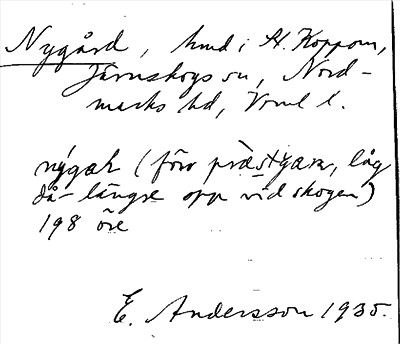 Nygård, hmd i St. Koppom,
Järnskogs sn, Nord-
marks hd, Vrml l.
nýgaɫ (förr præstgaɫ, låg
då längre opp vid skogen)
198 öre
E. Andersson 1935.